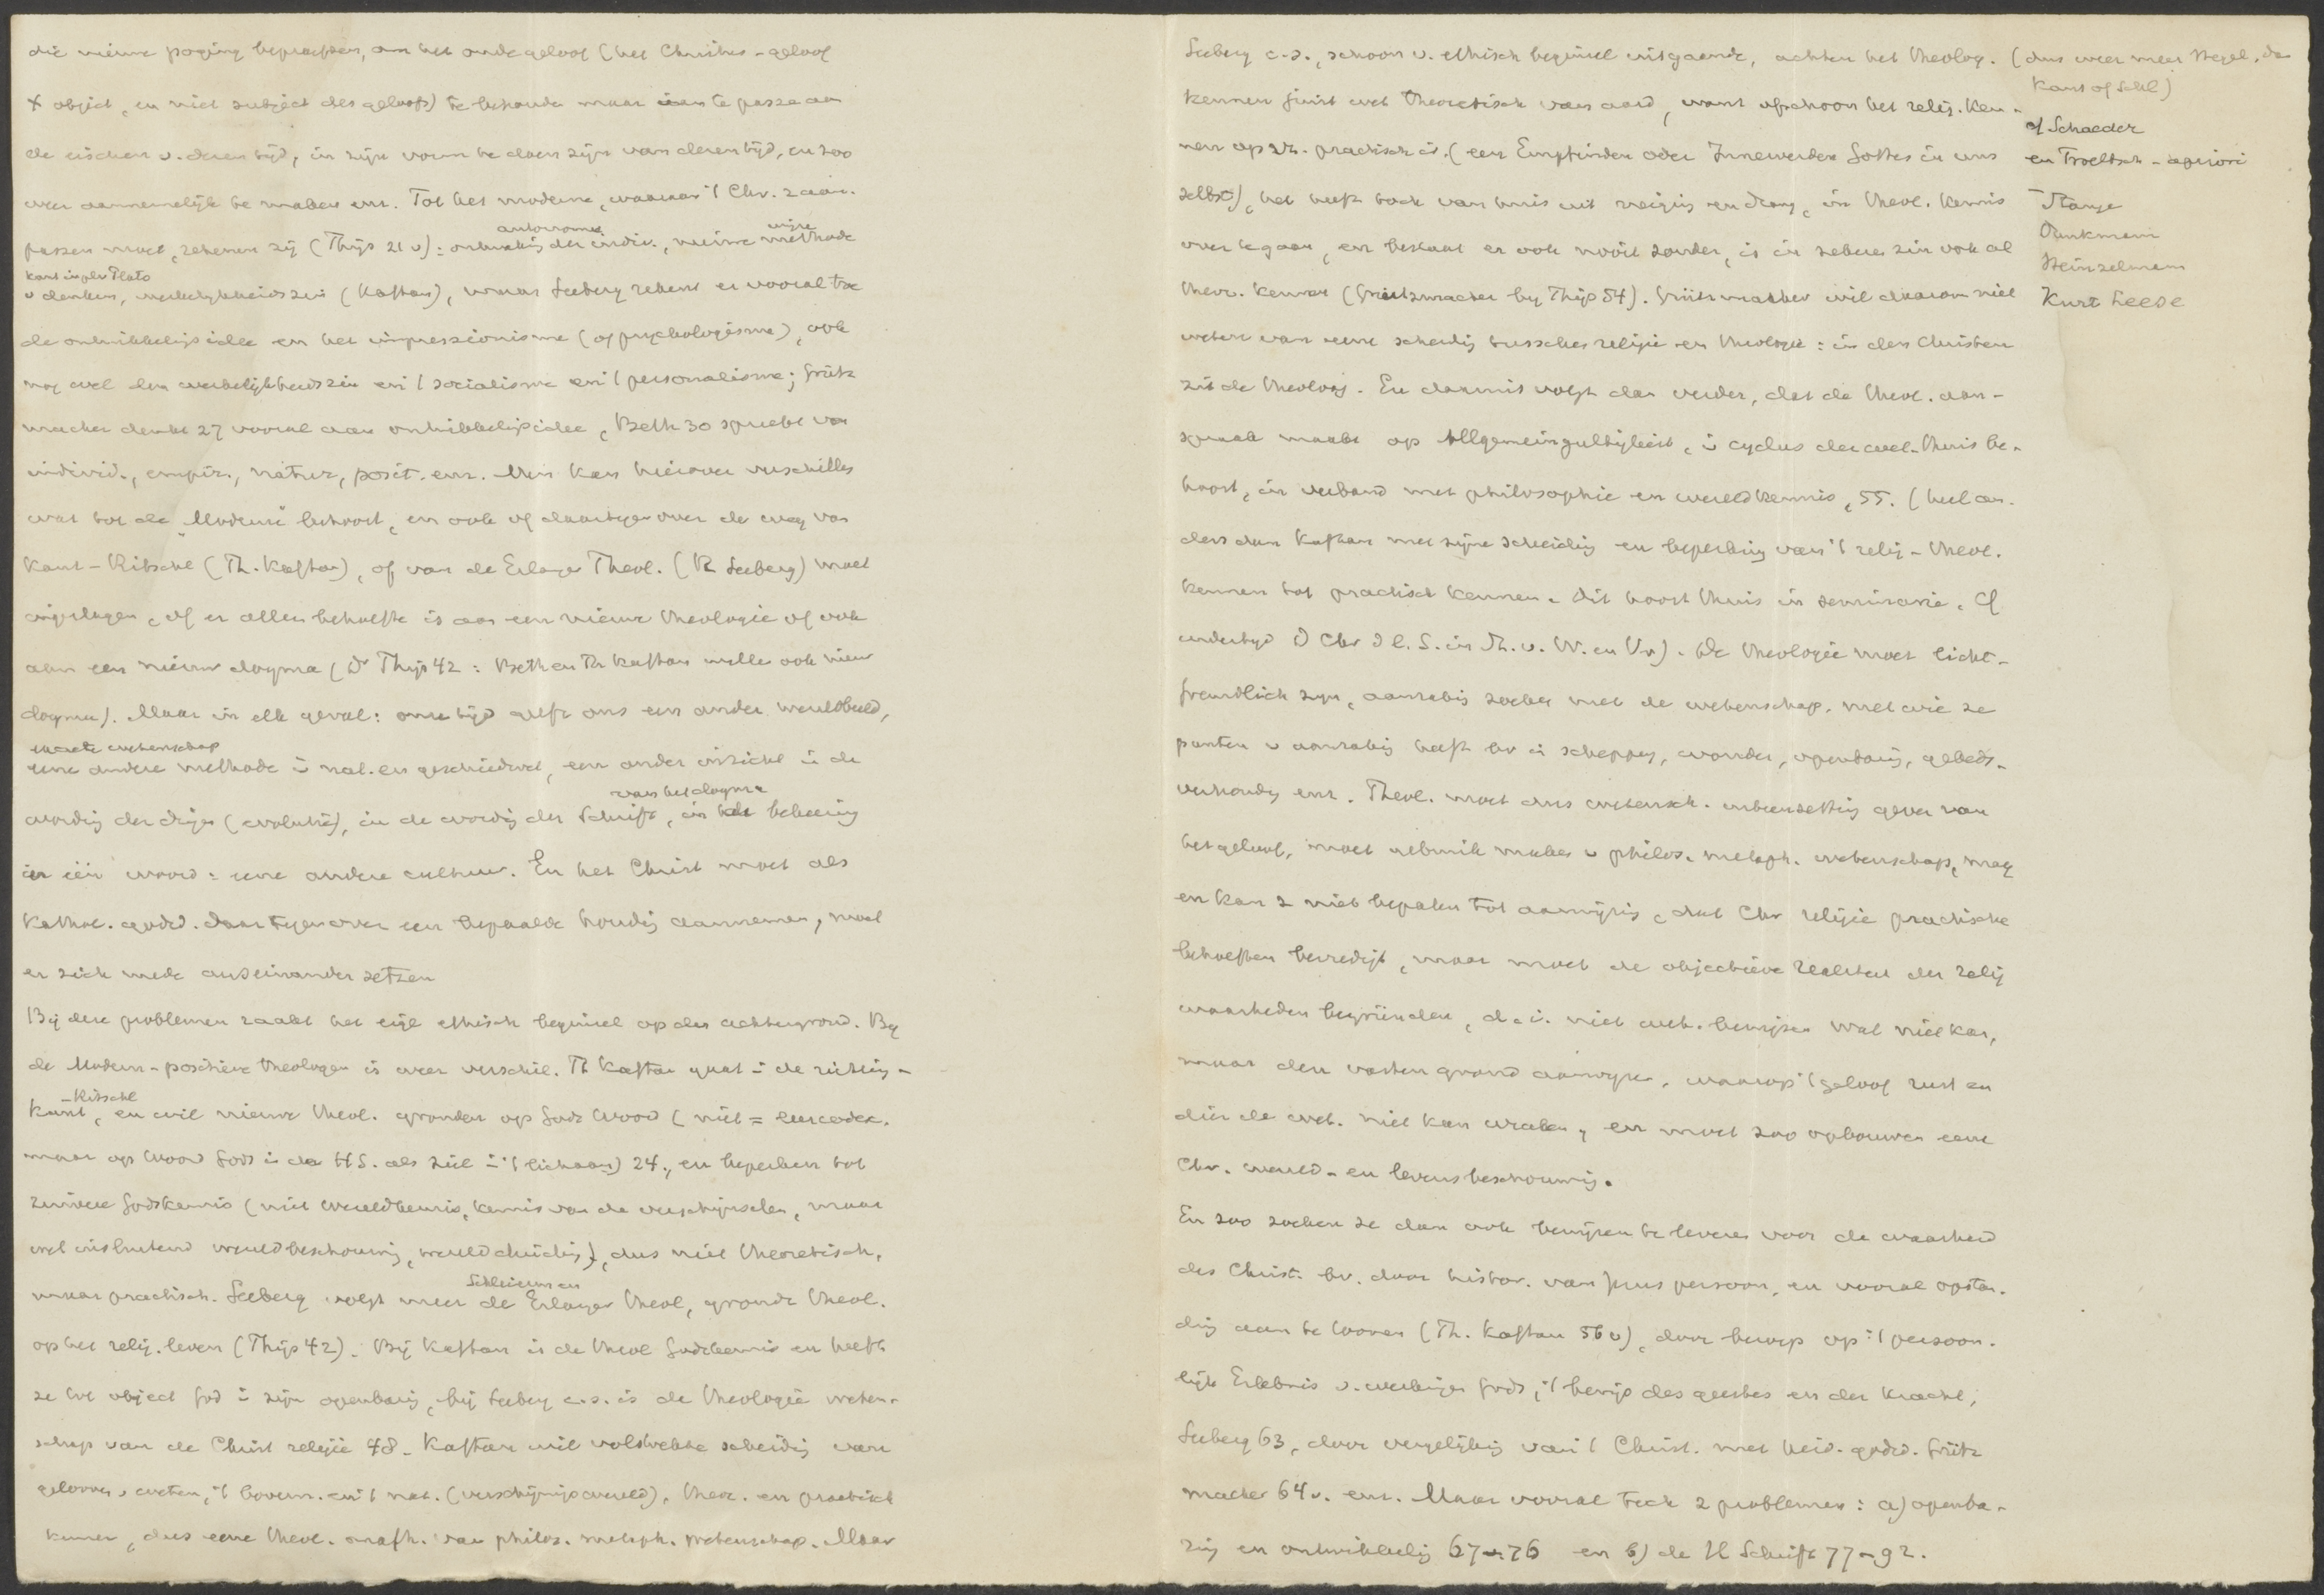 die nieuwe poging beproefden, om het oude geloof (het Christus-geloof
X object, en niet subject des geloofs) te behouden maar aan te passen aan
de eischen v. dezen tijd, in zijn vorm te doen zijn van dezen tijd, en zoo
weer aannemelijk te maken enz. Tot het moderne, waaraan 't Chr. z aan-
passen moet, rekenen zij (Thijs 21 v): autonomie der indiv., nieuwe wijze methode
Kant in plv Plato
v denken, werkelijkheidszin (Kaftan), waar Seeberg rekent er vooral toe
de ontwikkelingsidee en het impressionisme (of psychologisme), ook
nog wel den werkelijkheidszin en 't socialisme en 't personalisme; Grütz
macher denkt 27 vooral aan ontwikkelingsidee, Beth 30 spreekt van
individ., empir., natur, posit. enz. Men kan hierover verschillen
wat tot de „Moderne behoort, en ook of daartegenover de weg van
Kant-Ritschl (Th. Kaftan), of van de Erlanger Theol. (R Seeberg) moet
ingeslagen, of er alleen behoefte is aan een nieuwe theologie of ook
aan een nieuw dogma (Dr Thijs 42: Beth en Th Kaftan willen ook nieuw
dogma). Maar in elk geval: onze tijd geeft ons een ander wereldbeeld,
exacte wetenschap
eene andere methode i nat. en geschiedwet, een ander inzicht i de
wording der dingen (evolutie), in de wording der Schrift, in de van het dogma
in één woord: eene andere cultuur. En het Christ moet als
Kathol. godsd. daartegenover een bepaalde houding aannemen, moet
er zich mede auseinander setzen
Bij deze problemen raakt het eigl ethisch beginsel op den achtergrond. Bij
de Modern-positieve theologen is weer verschil. Th Kaftan gaat i de richting-
- Ritschl
Kant, en wil nieuwe theol. gronden op Gods Woord (niet = leercodex.
maar op Woord Gods in de H.S. als ziel i 't lichaam) 24, en beperken tot
zuivere Godskennis (niet wereldkennis, kennis van de verschijnselen, maar
wel insluitend wereldbeschouwing, wereldduiding), dus niet theoretisch,
maar practisch. Seeberg volgt meer Schleierm en de Erlanger theol, grondt theol.
op het relig. leven (Thijs 42). Bij Kaftan is de theol Godskennis en heeft
ze tot object God i zijn openbaring, bij Seeberg c.s. is de theologie weten-
schap van de Christ religie 48. Kaftan wil volstrekte scheiding van
gelooven v weten, 't bovenn. en 't nat. (verschijningswereld), theor. en practisch
kennen, dus eene theol. onafh. van philos. metaph. wetenschap. Maar
Seeberg c.s., schoon v. ethisch beginsel uitgaande, achten het theolog.
kennen juist wel theoretisch van aard, want ofschoon het relig. ken-
nen op zh. practisch is (een Empfinden oder Innewerden Gottes in uns
selbst), het heeft toch van huis uit neiging en drang, in theol. kennis
over te gaan, en bestaat er ook nooit zonder, is in zekeren zin ook al
theor. kennen (Grützmacher bij Thijs 54). Grützmacher wil daarom niet
weten van eene scheiding tusschen religie en theologie: in den Christen
zit de theoloog. En daaruit volgt dan verder, dat de theol. aan-
spraak maakt op Allgemeingültigkeit, i cyclus der wet. thuis be-
hoort, in verband met philosophie en wereldkennis, 55. (heel an-
ders dan Kaftan met zijne scheiding en beperking van 't relig-theol.
kennen tot practisch kennen. Dit hoort thuis in seminarie. Cf
De theologie moet licht-
freundlich zijn, aanraking zoeken met de wetenschap, met wie ze
punten v aanraking heeft bv in schepping, wonder, openbaring, gebeds-
verhooring enz. Theol. moet dus wetensch. uiteenzetting geven van
het geloof, moet gebruik maken v philos. metaph. wetenschap, mag
en kan z niet bepalen tot aanwijzing, dat Chr religie practische
behoeften bevredigt, maar moet de objectieve realiteit der relig
waarheden begründen, d.i. niet wet. bewijzen wat niet kan,
maar den vasten grond aanwijzen, waarop 't geloof rust en
dien de wet. niet kan wraken, en moet zoo opbouwen eene
Chr. wereld- en levensbeschouwing.
En zoo zoeken ze dan ook bewijzen te leveren voor de waarheid
des Christ. bv. door histor. van Jezus persoon, en vooral opstan-
ding aan te toonen (Th. Kaftan 56 v), door beroep op 't persoon-
lijk Erlebnis v. werkingen Gods, 't bewijs des geestes en der kracht,
Seeberg 63, door vergelijking van 't Christ. met heid. godsd. Grütz
macher 64 v. enz. Maar vooral toch 2 problemen: a) openba-
ring en ontwikkeling 67-76 en b) de H Schrift 77-92.
(dus weer meer Hegel, dan
Kant of Schl)
cf Schaeder
en Troeltsch - apriori
Stange
Dunkmann
Heinzelmann
Kurt Leese